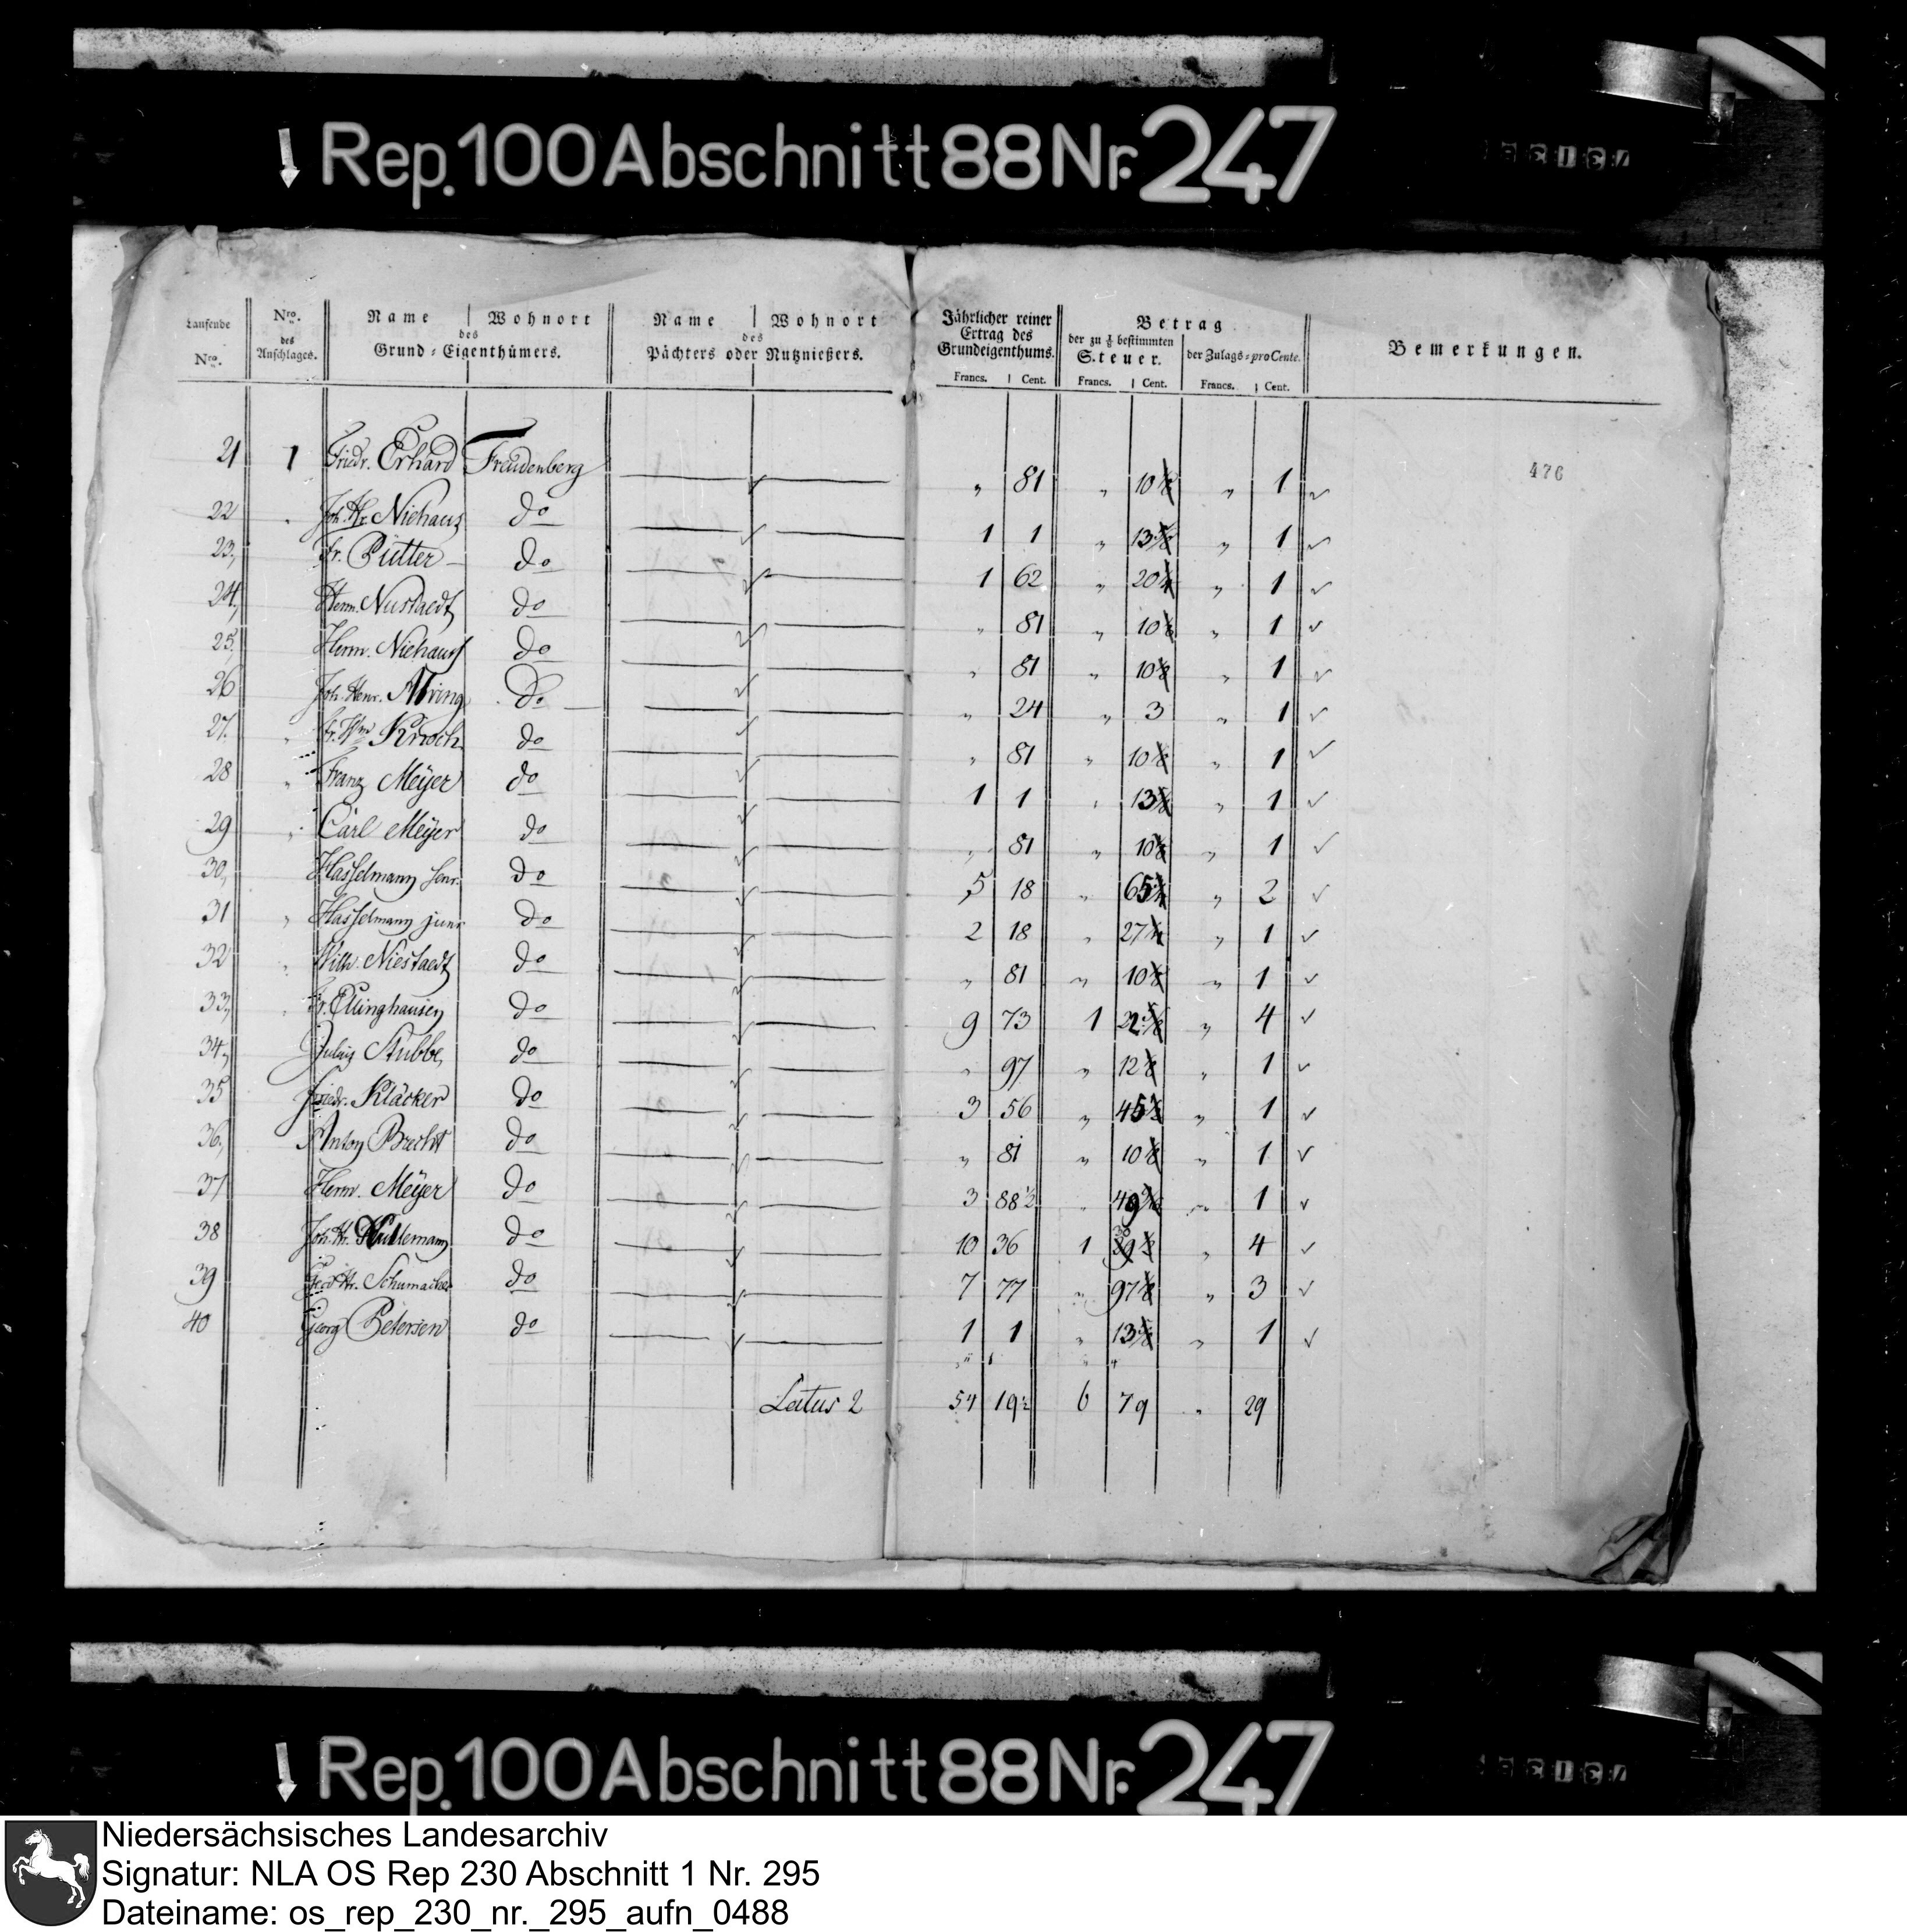 Rep. 100 Abschnitt 88 Nr. 247
Laufende Nro. | Nro. des Anschlages. | Name | Wohnort des Grund-Eigenthümers. | Name | Wohnort des Pächters oder Nutznießers. | Jährlicher reiner Ertrag des Grundeigenthums. Francs. | Cent. | Betrag der zu ⅛ bestimmten Steuer. Francs. | Cent. | der Zulags-pro Cente. Francs. | Cent. | Bemerkungen.
476
21 1 Friedr. Erhard Freudenberg " 81 " 10 ⅛ " 1
22 Joh. Hr. Niehaus do 1 1 " 13 ⅝ " 1
23, Fr. Pütter do 1 62 " 20 ¼ " 1
24, Herm. Nustaedt do " 81 " 10 ⅛ " 1
25, Herm. Niehaus do " 81 " 10 ⅛ " 1
26 Joh. Henr. do " 24 " 3 " 1
27. Fr. Kroch do " 81 " 10 ⅛ " 1
28 " Franz Meÿer do 1 1 " 13 ⅝ " 1
29 " Carl Meÿer do " 81 " 10 ⅛ " 1
30, Hasselmann senr. do 5 18 " 65 " 2
31 " Hasselmann junr do 2 18 " 27 ¼ " 1
32 Wilh. Niestaedt do " 81 " 10 ⅛ " 1
33, Fr. Ellinghausen do 9 73 1 22 ⅝ " 4
34, Julius Stubbe do " 97 " 12 ⅛ " 1
35 Friedr. Kläcker do 3 56 " 45 " 1
36, Anton Brecht do " 81 " 10 ⅛ " 1
37 Herm. Meÿer do 3 88 ½ " 49 " 1
38 Joh. Hr. do 10 36 1 " 4
39 Hr. Schumacher do 7 77 " 97 ⅛ " 3
40 Georg Petersen do 1 1 " 13 ⅝ " 1
Latus 2 54 19 ½ 6 79 " 29
Rep. 100 Abschnitt 88 Nr. 247
Niedersächsisches Landesarchiv
Signatur: NLA OS Rep 230 Abschnitt 1 Nr. 295
Dateiname: os_rep_230_nr._295_aufn_0488